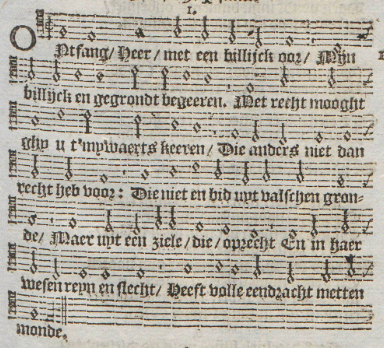 1.
ONtfang/ Heer/ met een billijck oor/ Mijn
billijck en gegrondt begeeren. Met recht mooght
ghy u t'mywaerts keeren/ Die anders niet dan
recht heb voor: Die niet en bid uyt valschen gron-
de/ Maer uyt een ziele/ die/ oprecht En in haer
wesen reyn en slecht/ Heeft volle eendracht metten
monde.